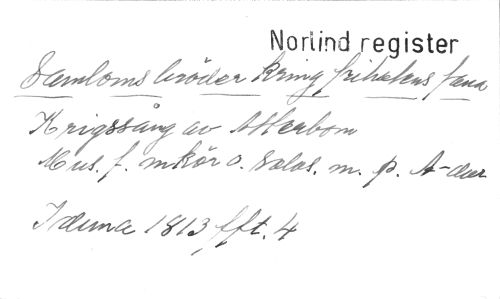 Norlind register
Samloms bröder kring frihetens fana
Krigssång av Atterbom
Mus. f. mkör o. solos. m. p. A-dur
Iduna 1813, fft. 4